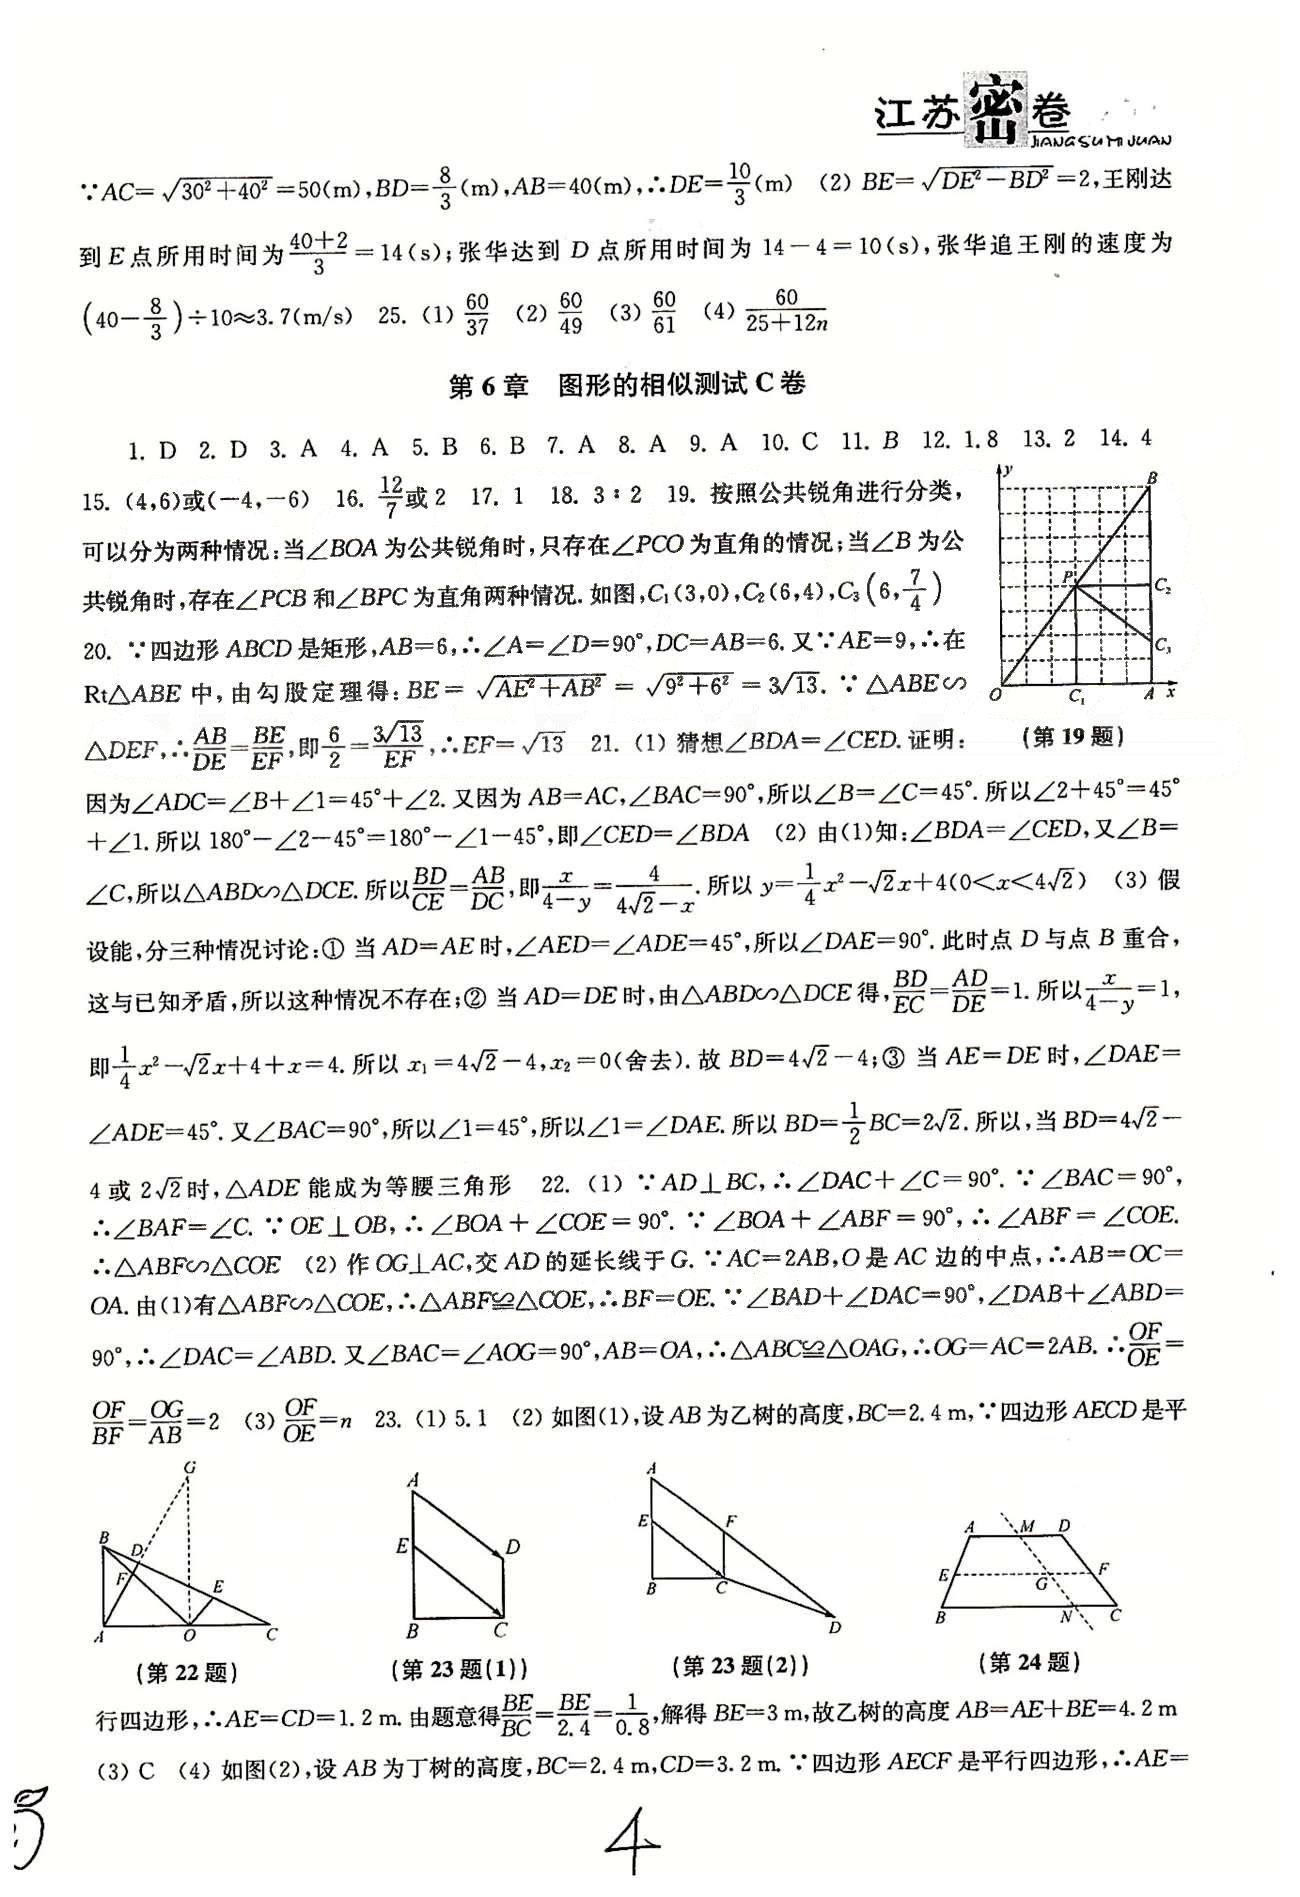 江苏密卷
JIANGSU MI JUAN
∵AC=√(30²+40²)=50(m),BD=8/3(m),AB=40(m),∴DE=10/3(m) (2) BE=√(DE²-BD²)=2,王刚达
到E点所用时间为(40+2)/3=14(s);张华达到 D 点所用时间为 14-4=10(s),张华追王刚的速度为
(40-8/3)÷10≈3.7(m/s) 25. (1) 60/37 (2) 60/49 (3) 60/61 (4) 60/(25+12n)
第 6 章 图形的相似测试 C 卷
1. D 2. D 3. A 4. A 5. B 6. B 7. A 8. A 9. A 10. C 11. B 12. 1.8 13. 2 14. 4
15. (4,6)或(-4,-6) 16. 12/7或2 17. 1 18. 3∶2 19. 按照公共锐角进行分类,
可以分为两种情况:当∠BOA为公共锐角时,只存在∠PCO为直角的情况;当∠B为公
共锐角时,存在∠PCB和∠BPC为直角两种情况. 如图,C₁(3,0),C₂(6,4),C₃(6,7/4)
20. ∵四边形ABCD是矩形,AB=6,∴∠A=∠D=90°,DC=AB=6. 又∵AE=9,∴在
Rt△ABE 中,由勾股定理得:BE=√(AE²+AB²)=√(9²+6²)=3√13. ∵△ABE∽
△DEF,∴AB/DE=BE/EF,即6/2=3√13/EF,∴EF=√13 21. (1) 猜想∠BDA=∠CED. 证明:
y
B
P
C₂
C₃
O
C₁
A
x
(第 19 题)
因为∠ADC=∠B+∠1=45°+∠2. 又因为 AB=AC,∠BAC=90°,所以∠B=∠C=45°. 所以∠2+45°=45°
+∠1. 所以 180°-∠2-45°=180°-∠1-45°,即∠CED=∠BDA (2) 由(1)知:∠BDA=∠CED,又∠B=
∠C,所以△ABD∽△DCE. 所以BD/CE=AB/DC,即x/(4-y)=4/(4√2-x). 所以 y=1/4x²-√2x+4(0<x<4√2) (3) 假
设能,分三种情况讨论:① 当AD=AE时,∠AED=∠ADE=45°,所以∠DAE=90°. 此时点 D 与点 B 重合,
这与已知矛盾,所以这种情况不存在;② 当AD=DE时,由△ABD∽△DCE得,BD/EC=AD/DE=1. 所以x/(4-y)=1,
即1/4x²-√2x+4+x=4. 所以 x₁=4√2-4,x₂=0(舍去). 故 BD=4√2-4;③ 当 AE=DE 时,∠DAE=
∠ADE=45°. 又∠BAC=90°,所以∠1=45°,所以∠1=∠DAE. 所以 BD=1/2BC=2√2. 所以,当 BD=4√2-
4 或 2√2时,△ADE 能成为等腰三角形 22. (1) ∵AD⊥BC,∴∠DAC+∠C=90°. ∵∠BAC=90°,
∴∠BAF=∠C. ∵OE⊥OB,∴∠BOA+∠COE=90°. ∵∠BOA+∠ABF=90°,∴∠ABF=∠COE.
∴△ABF∽△COE (2) 作OG⊥AC,交AD的延长线于G. ∵AC=2AB,O是AC边的中点,∴AB=OC=
OA. 由(1)有△ABF∽△COE,∴△ABF≌△COE,∴BF=OE. ∵∠BAD+∠DAC=90°,∠DAB+∠ABD=
90°,∴∠DAC=∠ABD. 又∠BAC=∠AOG=90°,AB=OA,∴△ABC≌△OAG,∴OG=AC=2AB. ∴OF/OE=
OF/BF=OG/AB=2 (3) OF/OE=n 23. (1) 5.1 (2) 如图(1),设AB为乙树的高度,BC=2.4 m,∵四边形AECD是平
G
B
D
F
E
A
O
C
(第 22 题)
A
E
D
B
C
(第 23 题(1))
A
E
F
B
C
D
(第 23 题(2))
A
M
D
E
G
F
B
N
C
(第 24 题)
行四边形,∴AE=CD=1.2 m. 由题意得BE/BC=BE/2.4=1/0.8,解得 BE=3 m,故乙树的高度 AB=AE+BE=4.2 m
(3) C (4) 如图(2),设AB为丁树的高度,BC=2.4 m,CD=3.2 m. ∵四边形 AECF 是平行四边形,∴AE=
4